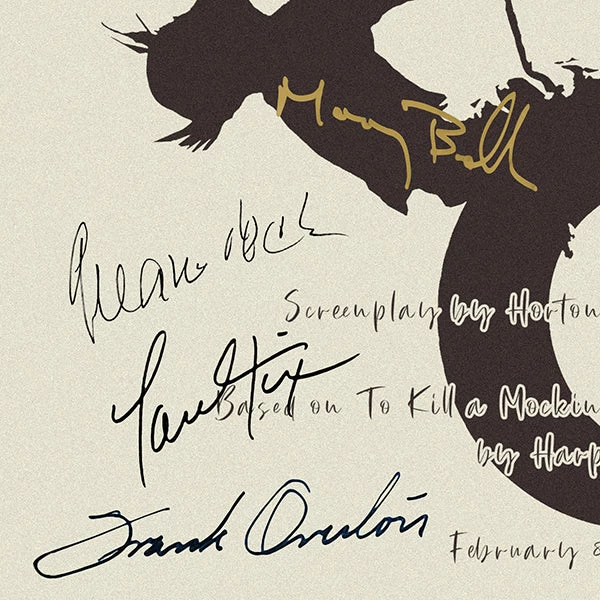 Mary
Screenplay by Horton
Paul Fix
Based on To Kill a Mockin
by Harp
Frank Overton
February 8